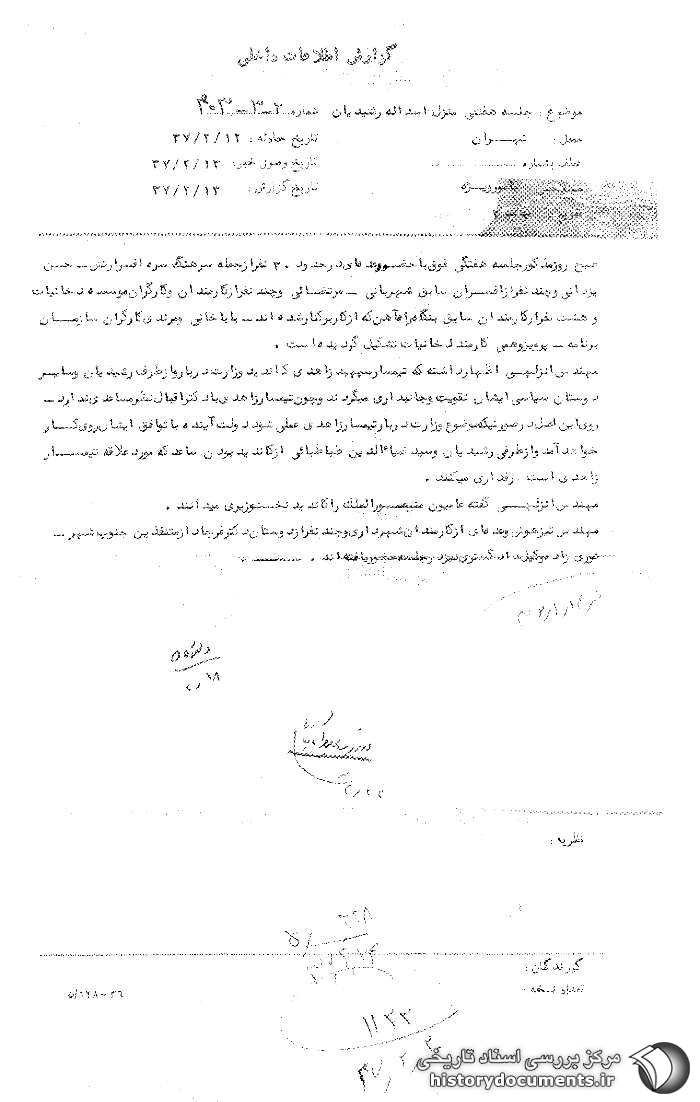 گزارش اطلاعات داخلی
موضوع : جلسه هفتگی منزل اسداله رشیدیان شماره
محل : تهـــران تاریخ حادثه : ۳۷/۲/۱۲
عطف بشماره تاریخ وصول خبر: ۳۷/۲/۱۳
تاریخ گزارش : ۳۷/۲/۱۳
صبح روزمذکورجلسه هفتگی فوق باحضور عده‌ای درحدود ۳۰ نفرازجمله سرهنگ سره افسرارتش ـ حسن
یزدانی وچند نفرازافسران سابق شهربانی ـ مرتضائی وچند نفرازکارمندان وکارگران موسسه دخانیات
و هشت نفرازکارمندان سابق بنگاه راه‌آهن که ازکاربرکنارشده‌اند ـ باباخانی و کارگران سازمان
برنامه ـ پرویزوهمی کارمند دخانیات تشکیل گردیده است .
مهندس انزلچـی اظهارداشته که تیمسارسپهبد زاهدی کاندید وزارت درباروازطرف رشیدیان وسایـر
دوستان سیاسی ایشان تقویت وجانبداری میگردند وچون تیمسارزاهدی بادکتراقبال نظرمساعدی ندارد ـ
روی این اصل درصورتیکه موضوع وزارت دربارتیمسارزاهدی عملی شود دولت آینده باتوافق ایشان روی کــار
خواهد آمد وازطرفی رشیدیان وسید ضیاءالدین طباطبائی ازکاندید بودن ساعد که مورد علاقه تیمســار
زاهدی است . طرفداری میکنند .
مهندس انزلچـی گفته عامیون منصورالملک راکاندید نخست‌وزیری میدانند .
مهندس وعده‌ای ازکارمندان شهرداری وچند نفرازدوستان دکترفرهاد ازمتنفذین جنوب شهر ـ
نوری زاد وکیل دادگستری نیزدرجلسه حضوریافته‌اند .
نظریه :
گیرندگان :
تعداد نسخه :
۵/۱۲۸-۳۶
۱۱۳۳
مرکز بررسی اسناد تاریخی
historydocuments.ir